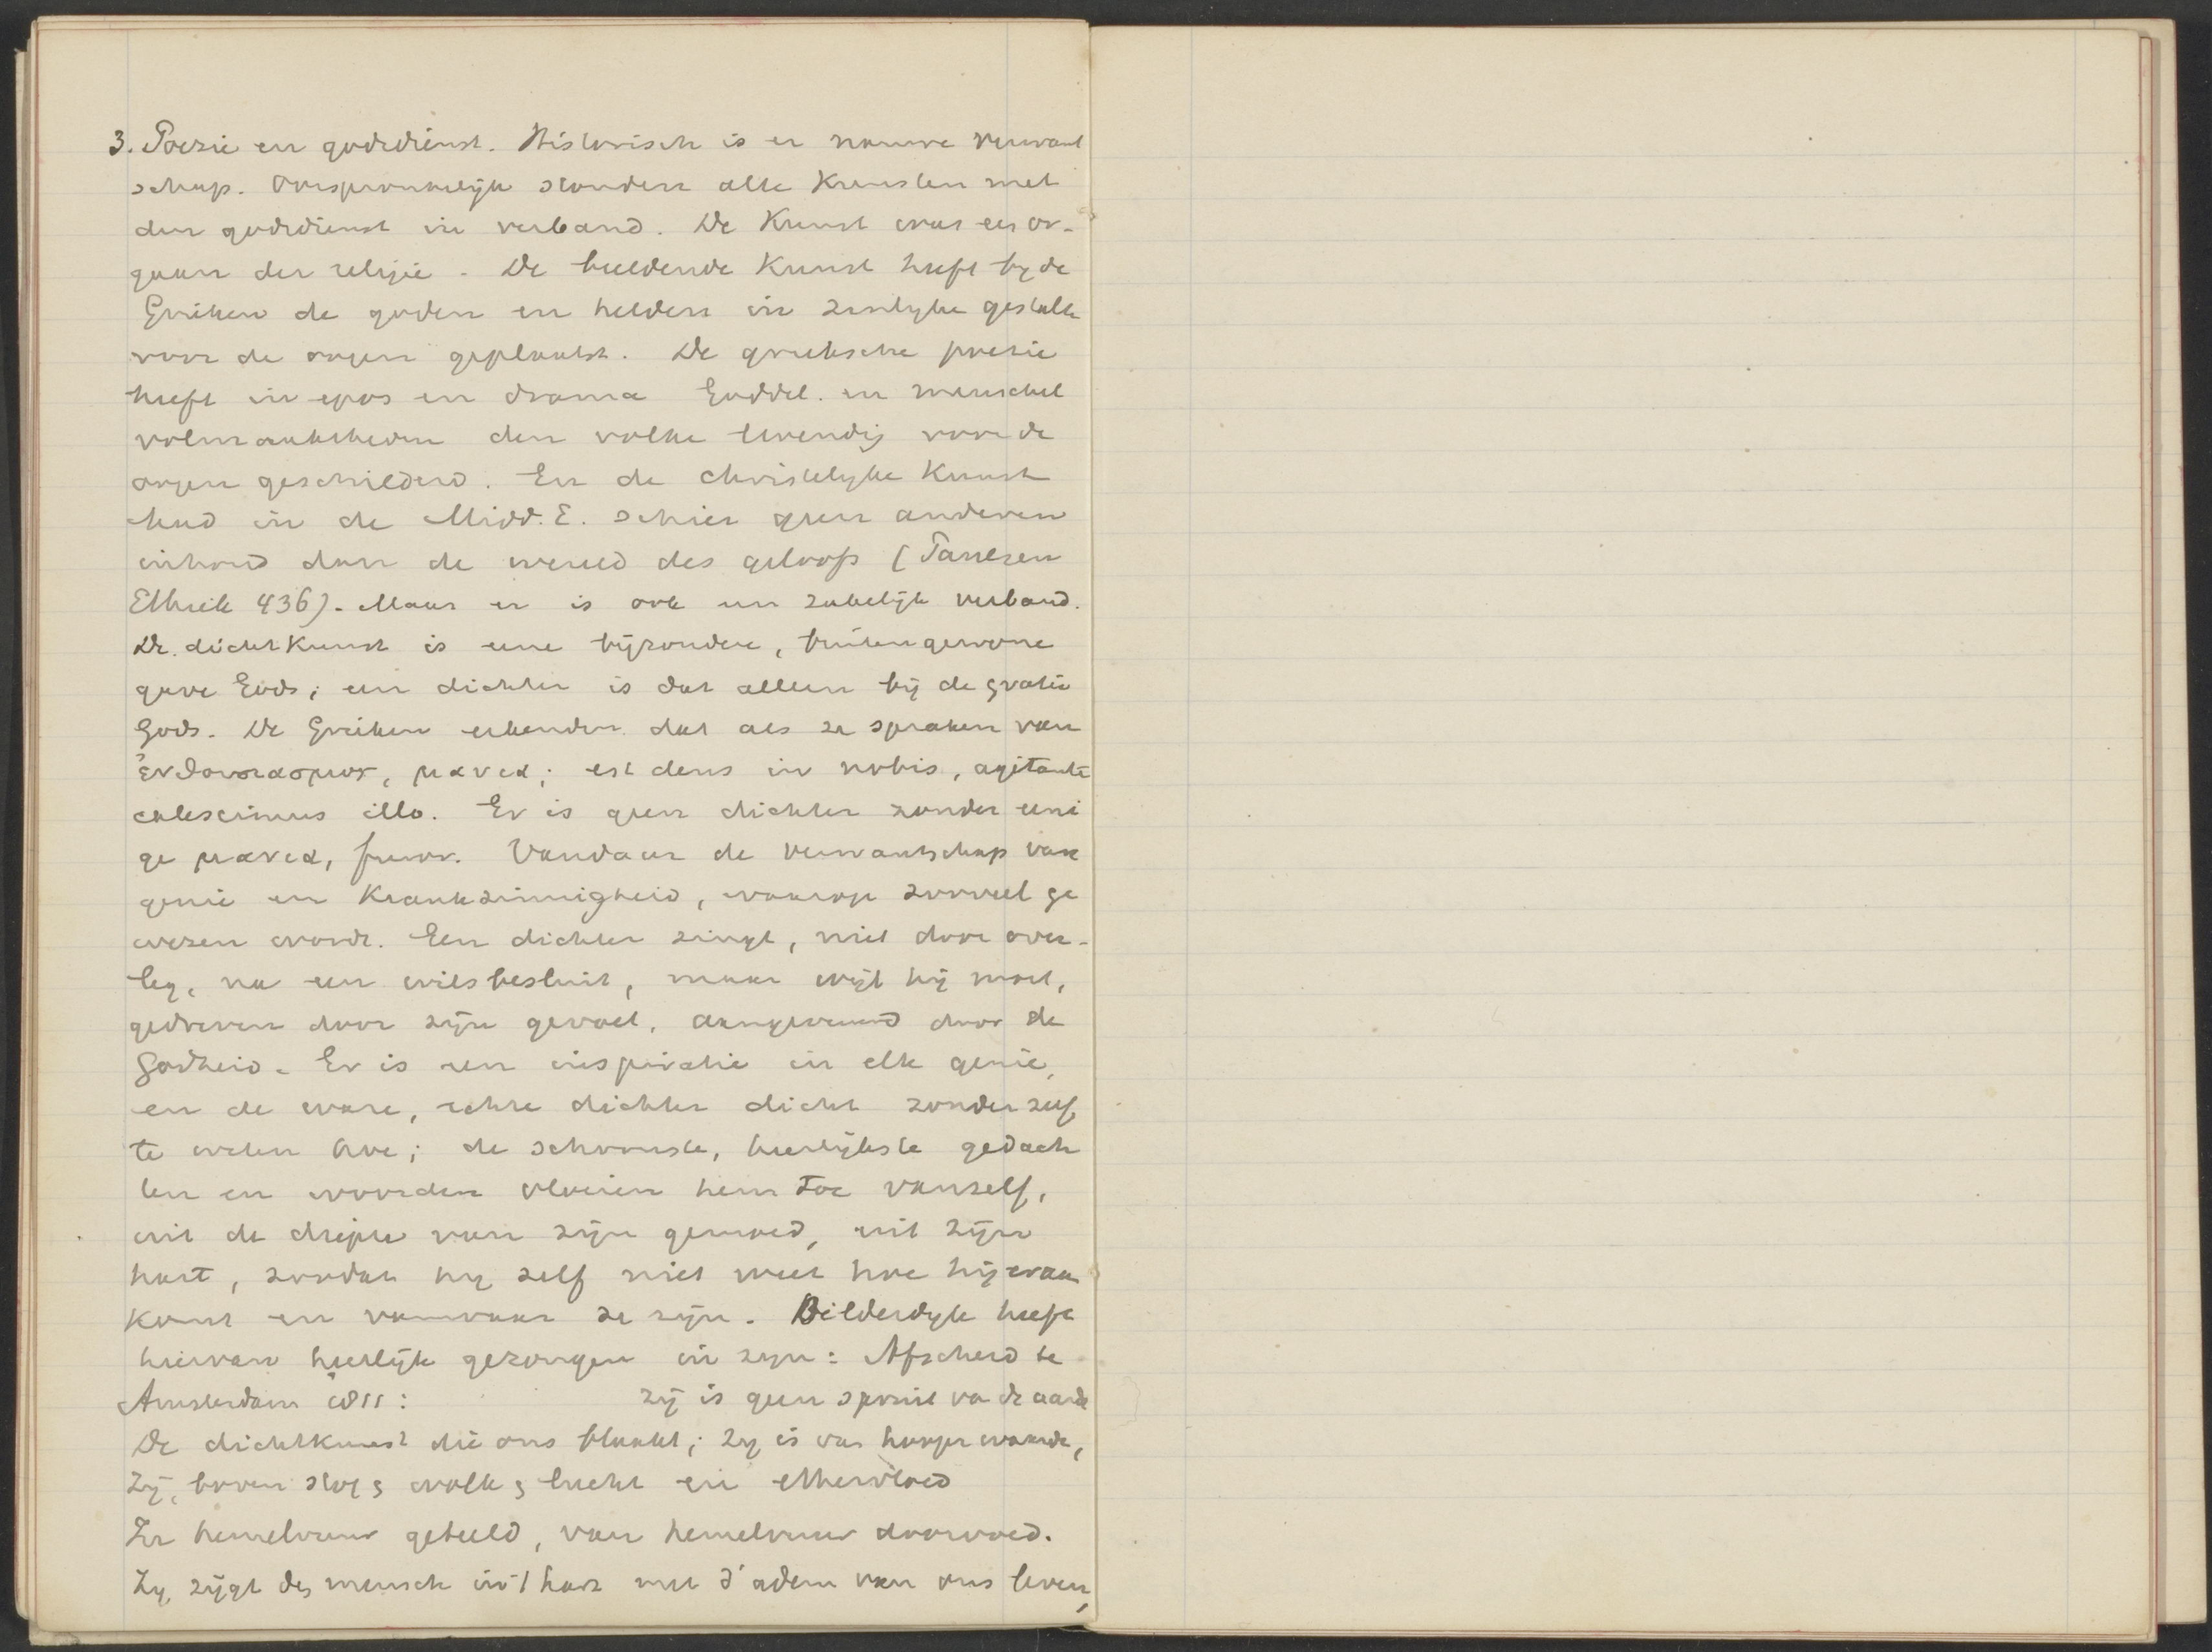 3. Poezie en godsdienst. Historisch is er nauwe verwant
schap. Oorspronkelijk stonden alle Kunsten met
den godsdienst in verband. De Kunst was een or-
gaan der religie. De beeldende Kunst heeft by de
Grieken de goden en helden in zinlyke gestalte
voor de oogen geplaatst. De grieksche poezie
heeft in epos en drama Goddel. en menschel
volmaaktheden den volke levendig voor de
oogen geschilderd. En de christelyke Kunst
had in de Midd. E. schier geen anderen
inhoud dan de wereld des geloofs (
Ethik 436). Maar er is ook een zakelijk verband.
De dichtkunst is eene bijzondere, buitengewone
gave Gods; een dichter is dat alleen bij de gratie
Gods. De Grieken erkenden dat als ze spraken van
ἐνθουσιασμος, μανια; est deus in nobis, agitante
calescimus illo. Er is geen dichter zonder eeni
ge μανια, furor. Vandaar de verwantschap van
genie en Krankzinnigheid, waarop zooveel ge
wezen wordt. Een dichter zingt, niet door over-
leg, na een wilsbesluit, maar wijl hij moet,
gedreven door zijn gevoel, aangevuurd door de
Godheid. Er is een inspiratie in elk genie,
en de ware, echte dichter dicht zonder zelf
te weten hoe; de schoonste, heerlijkste gedach
ten en woorden vloeien hem toe vanzelf,
uit de diepte van zijn gemoed, uit zijn
hart, zoodat hy zelf niet weet hoe hij eraan
komt en vanwaar ze zijn. Bilderdyk heeft
hiervan heerlijk gezongen in zyn: Afscheid te
Amsterdam 1811: zij is geen spruit van de aarde
De dichtkunst die ons blaakt; zy is van hooger waarde,
Zij, boven stof, wolk, lucht en ethervloed
In hemelvuur geteeld, van hemelvuur doorvoed.
Zy, zijgt den mensch in 't hart met d'adem van ons leven,